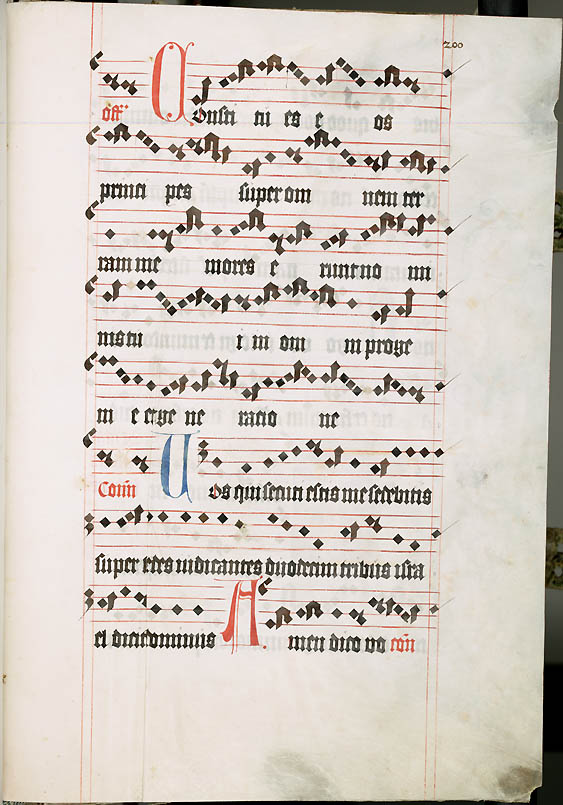 200
off̄ Consti tu es e os
princi pes super om nem ter
ram me mores e runt no mi
nis tu i in om ni proge
ni e et ge ne ratio ne
Com̄ Uos qui secuti estis me sedebitis
super sedes iudicantes duodecim tribus isra
el dicit dominus Amen dico vo com̄